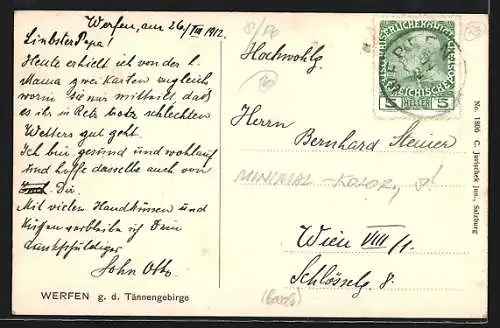 Werfen, am 26/VIII 1912.
Liebster Papa!
Heute erhielt ich von der l.
Mama zwei Karten zugleich
worin sie mir mitteilt, dass
es ihr in Retz trotz schlechten
Wetters gut geht.
Ich bin gesund und wohlauf
und hoffe dasselbe auch von
Dir.
Mit vielen Handküssen und
Küssen verbleibe ich Dein
dankschuldiger
Sohn Otto
WERFEN g. d. Tännengebirge
Hochwohlg.
Herrn
Bernhard Steiner
MINIMAL-KOLOR,
Wien VIII/1.
Schlösselg. 8.
WERFEN
5 HELLER 5
No. 1806 C. Jurischek jun., Salzburg